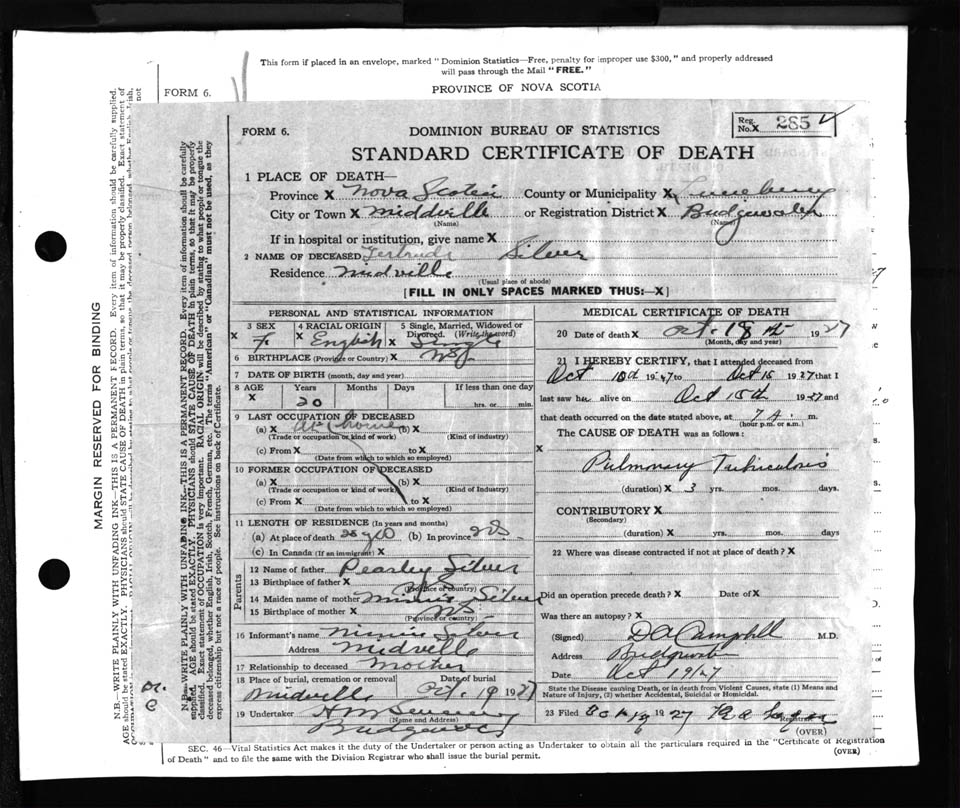 This form if placed in an envelope, marked "Dominion Statistics—Free, penalty for improper use $300," and properly addressed
will pass through the Mail "FREE."
PROVINCE OF NOVA SCOTIA
FORM 6.
MARGIN RESERVED FOR BINDING
N.B. WRITE PLAINLY WITH UNFADING INK—THIS IS A PERMANENT RECORD. Every item of information should be carefully supplied.
AGE should be stated EXACTLY. PHYSICIANS should STATE CAUSE OF DEATH in plain terms, so that it may be properly classified. Exact statement of
N.B.—WRITE PLAINLY WITH UNFADING INK—THIS IS A PERMANENT RECORD. Every item of information should be carefully
supplied. AGE should be stated EXACTLY. PHYSICIANS should state CAUSE OF DEATH in plain terms, so that it may be properly
classified. Exact statement of OCCUPATION is very important. RACIAL ORIGIN will be described by stating to what people or tongue the
deceased belonged, whether English, Irish, Scotch, French, German, etc. The terms "American" or "Canadian" must not be used, as they
express citizenship but not a race of people. See instructions on back of Certificate.
FORM 6.
DOMINION BUREAU OF STATISTICS
Reg. No. X 285
STANDARD CERTIFICATE OF DEATH
1 PLACE OF DEATH—
Province X Nova Scotia County or Municipality X Lunenburg
City or Town X Middville or Registration District X Bridgewater
(Name) (Name)
If in hospital or institution, give name X
2 NAME OF DECEASED Gertrude Silver
Residence Midville
(Usual place of abode)
[FILL IN ONLY SPACES MARKED THUS:—X]
PERSONAL AND STATISTICAL INFORMATION
3 SEX 4 RACIAL ORIGIN 5 Single, Married, Widowed or Divorced. (Write the word)
X F. X English X Single
6 BIRTHPLACE (Province or Country) X NS
7 DATE OF BIRTH (month, day and year)
8 AGE Years Months Days If less than one day
X 20 hrs. or min.
9 LAST OCCUPATION OF DECEASED
(a) X At home (b) X
(Trade or occupation or kind of work) (Kind of industry)
(c) From X to X
(Date from which to which so employed)
10 FORMER OCCUPATION OF DECEASED
(a) X (b) X
(Trade or occupation or kind of work) (Kind of Industry)
(c) From X to X
(Date from which to which so employed)
11 LENGTH OF RESIDENCE (In years and months)
(a) At place of death (b) In province
(c) In Canada (If an immigrant) X
Parents
12 Name of father Pearley Silver
13 Birthplace of father X NS
(Province or country)
14 Maiden name of mother Minnie Silver
15 Birthplace of mother X NS
(Province or country)
16 Informant's name Minnie Silver
Address Midville
17 Relationship to deceased Mother
18 Place of burial, cremation or removal Date of burial
Midville Oct. 19 1927
19 Undertaker
(Name and Address)
Bridgewater
MEDICAL CERTIFICATE OF DEATH
20 Date of death X Oct. 18th 1927
(Month, day and year)
21 I HEREBY CERTIFY, that I attended deceased from
Oct 10th 1927 to Oct 15 1927 that I
last saw her alive on Oct 15th 1927 and
that death occurred on the date stated above, at 7 A. m.
(hour p.m. or a.m.)
The CAUSE OF DEATH was as follows:
X
Pulmonary Tuberculosis
(duration) X 3 yrs. mos. days.
CONTRIBUTORY X
(Secondary)
(duration) X yrs. mos. days
22 Where was disease contracted if not at place of death? X
Did an operation precede death? X Date of X
Was there an autopsy? X
(Signed) D A Campbell M.D.
Address Bridgewater
Date Oct 19/27
State the Disease causing Death, or in death from Violent Causes, state (1) Means and
Nature of Injury, (2) whether Accidental, Suicidal or Homicidal.
23 Filed Oct 19 1927
Registrar
(OVER)
SEC. 46—Vital Statistics Act makes it the duty of the Undertaker or person acting as Undertaker to obtain all the particulars required in the "Certificate of Registration
of Death" and to file the same with the Division Registrar who shall issue the burial permit.
(OVER)